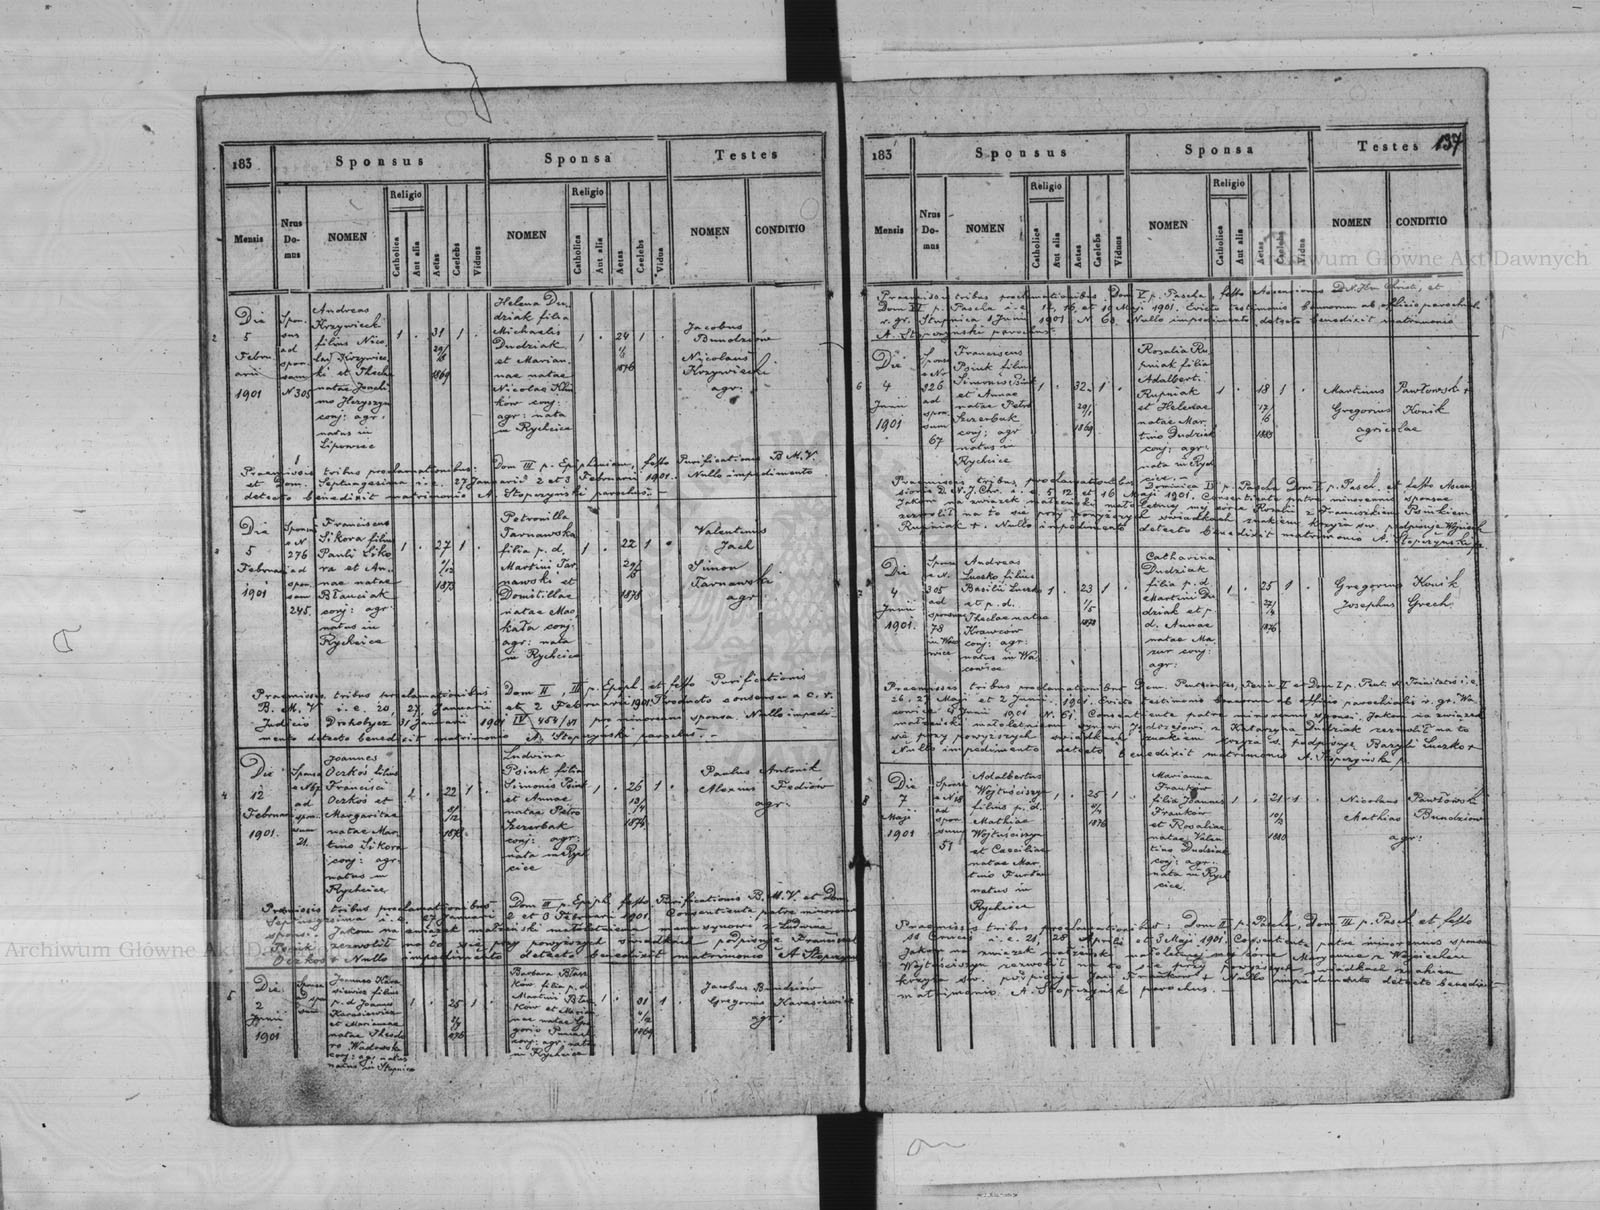 183
Sponsus
Sponsa
Testes
Mensis
Nrus Domus
NOMEN
Religio
Catholica
Aut alia
Aetas
Caelebs
Viduus
NOMEN
Religio
Catholica
Aut alia
Aetas
Caelebs
Vidua
NOMEN
CONDITIO
2
Die
5
Februarii
1901
Sponsus
ad
sponsam
N 305
Andreas
Krzywiecki
filius Nicolai
Krzywiecki et Theclae
natae
conj: agr.
natus in
Lipowiec
1
31
1869
1
Helena Dudziak
filia
Michaelis
Dudziak
et Mariannae
natae
Nicolao
conj:
agr: nata
in Rychcice
1
24
1876
1
Jacobus
Bundziów
Nicolaus
Krzywiecki
agr.
Praemissis tribus proclamationibus: Dom III p. Epiphaniam, festo Purificationis B M.V.
et Dom. Septuagesima i.e. 27 Januarii 2 et 3 Februarii 1901. Nullo impedimento
detecto benedixit matrimonio A. Stopczyński parochus.
Die
5
Februarii
1901
276
ad
sponsam
245
Franciscus
Sikora filius
Pauli Sikora
et Annae
natae
Błanciak
conj: agr.
natus in
Rychcice
1
27
1873
1
Petronilla
Tarnawska
filia p. d.
Martini Tarnawski
et
Domitillae
natae
conj.
agr: nata
in Rychcice
1
22
1878
1
Valentinus
Jach
Simon
Tarnawski
agr
Praemissis tribus proclamationibus Dom II, III p. Epiph. et festo Purificationis
B. M. V. i.e. 20, 27 Januarii et 2 Februarii 1901. Producto consensu a c. r.
Judicio Drohobycz 31 Januarii 1901 IV pro minorenni sponsa. Nullo impedimento
detecto benedixit matrimonio A. Stopczyński parochus.
4
Die
12
Februarii
1901.
ad
sponsam
21.
Joannes
Oczkoś filius
Francisci
Oczkoś et
Margaritae
natae Martino
Sikora
conj: agr.
natus in
Rychcice
1
22
1
Ludwina
Psiuk filia
Simonis Psiuk
et Annae
natae Petro
Szczerbak
conj: agr.
nata in Rychcice
1
26
1874
1
Paulus Antonik
Alexius Fediów
agr.
Praemissis tribus proclamationibus Dom III p. Epiph. festo Purificationis B. M. V. et Dom
Septuagesima i.e. 27 Januarii 2 et 3 Februarii 1901. Consentiente patre minorenni
sponsi. Jakom na związek małżeński małoletniego mego synowi z Ludwiną
Psiuk zezwolił na to się przy powyższych świadkach podpisuję Franciszek
Oczkoś + Nullo impedimento detecto benedixit matrimonio A Stopczyński
5
Die
2
Junii
1901
Joannes Karasiewicz
filius
p. d. Joannis
Karasiewicz
et Mariannae
natae Theodoro
Wadowski
conj: agr. natus
natus in Stupnica
1
25
1
Barbara
filia p. d.
Martini
et Mariannae
natae Gregorio
conj: agr: nata
in Rychcice
1
31
1869
1
Jacobus Bundziów
Gregorius Karasiewicz
agr:
137
183
Sponsus
Sponsa
Testes
Mensis
Nrus Domus
NOMEN
Religio
Catholica
Aut alia
Aetas
Caelebs
Viduus
NOMEN
Religio
Catholica
Aut alia
Aetas
Caelebs
Vidua
NOMEN
CONDITIO
Praemissis tribus proclamationibus Dom V p. Pascha, festo Ascensionis D.N. Jesu Christi, et
Dom VI p. Pascha i.e. 12, 16, et 19 Maji 1901. Exhibito testimonio bannorum ab officio parochiali
r. gr. Stupnica 1 Junii 1901 N. 60. Nullo impedimento detecto benedixit matrimonio
A. Stopczyński parochus.
6
Die
4
Junii
1901
326
ad
sponsam
67
Franciscus
Psiuk filius
Simonis Psiuk
et Annae
natae Petro
Szczerbak
conj: agr
natus in
Rychcice
1
32
1869
1
Rosalia Rupniak
filia
Adalberti
Rupniak
et Helenae
natae Martino
Dudziak
conj: agr:
nata in Rychcice.
1
18
1883
1
Martinus Pawłowski +
Gregorius Konik
agricolae
Praemissis tribus proclamationibus Dominica IV p. Pascha Dom V p. Pasch. et festo Ascensionis
D. N. J. Chr. i. e. 5, 12, et 16 Maji 1901. Consentiente patre minorennis sponsae
Jakom na związek małżeński małoletniej mej córce Rozalii z Franciszkiem Psiukiem
zezwolił na to się przy powyższych świadkach znakiem krzyża św. podpisuję Wojciech
Rupniak +. Nullo impedimento detecto benedixit matrimonio A. Stopczyński p.
7
Die
4
Junii
1901.
305
ad
sponsam
78
Andreas
Luczko filius
Basilii Luczko
et p. d.
Theclae natae
Krawców
conj: agr:
natus in Wacowice
1
23
1878
1
Catharina
Dudziak
filia p. d
Martini Dudziak
et p.
d. Annae
natae Mazur
conj:
agr:
1
25
1876
1
Gregorius Konik
Josephus Grech
Praemissis tribus proclamationibus Dom. Pentecostes, Feria II et Dom I p. Pent. S. Trinitatis i.e.
26, 27 Maji et 2 Junii 1901. Exhibito testimonio bannorum ab officio parochialis r. gr. Wacowice
4 Junii 1901 N. 61. Consentiente patre minorennis sponsi. Jakom na związek
małżeński małoletniemu synowi Jędrzejowi z Katarzyną Dudziak zezwolił na to
się przy powyższych świadkach znakiem krzyża s. podpisuję Bazyli Luczko +
Nullo impedimento detecto benedixit matrimonio A. Stopczyński p.
8
Die
7
Maji
1901
ad
sponsam
51
Adalbertus
Wojtuściszyn
filius p. d.
Mathiae
Wojtuściszyn
et Caeciliae
natae Martino
natus in
Rychcice
1
25
1876
1
Marianna
Franków
filia Joannes
Franków
et Rosaliae
natae Valentino
Dudziak
conj: agr.
nata in Rychcice.
1
21
1880
1
Nicolaus Pawłowski
Mathias Bundziów
agr:
Praemissis tribus proclamationibus: Dom II p. Pascha, Dom III p. Pasch et festo
S. Crucis i.e. 21, 28 Aprilis et 3 Maji 1901. Consentiente patre minorennis sponsae
Jakom na związek małżeński małoletniej mej córce Maryannie z Wojciechem
Wojtuściszyn zezwolił na to się przy powyższych świadkach znakiem
krzyża św. podpisuję Jan Franków + Nullo impedimento detecto benedixit
matrimonio. A. Stopczyński parochus.
Archiwum Główne Akt Dawnych
Archiwum Główne Akt Dawnych